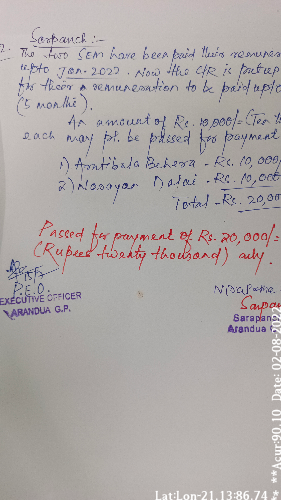 Sarpanch :-
2. The two SEM have been paid their remuner
upto Jan-2022. Now the C/R is put up
for their remuneration to be paid upto
(5 months).
An amount of Rs. 10,000/= (Ten th
each may pl. be passed for payment
1) Aratibala Behera - Rs. 10,000/
2) Narayan Dalai - Rs. 10,000
Total - Rs. 20,00
Passed for payment of Rs. 20,000/=
(Rupees twenty thousand) only.
P.E.O.
EXECUTIVE OFFICER
ARANDUA G.P.
Sarpan
Sarapanc
Arandua G
Lat:Lon-21.13:86.74
** **Acur:90.10 Date: 02-08-2022